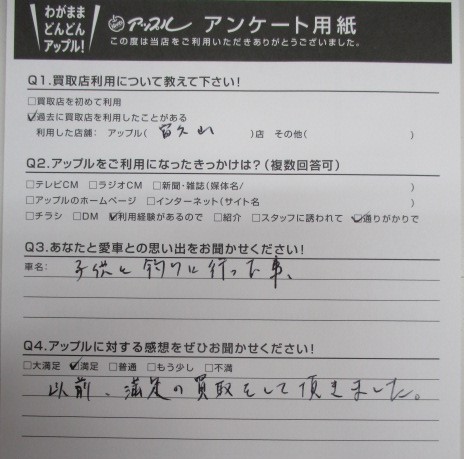 わがまま
どんどん
アップル!
アップル アンケート用紙
この度は当店をご利用いただきありがとうございました。
Q1.買取店利用について教えて下さい!
□買取店を初めて利用
☑過去に買取店を利用したことがある
利用した店舗: アップル( 富久山 )店 その他( )
Q2.アップルをご利用になったきっかけは?(複数回答可)
□テレビCM □ラジオCM □新聞・雑誌(媒体名/ )
□アップルのホームページ □インターネット(サイト名 )
□チラシ □DM ☑利用経験があるので □紹介 □スタッフに誘われて ☑通りがかりで
Q3.あなたと愛車との思い出をお聞かせください!
車名: 子供と釣りに行った車、
Q4.アップルに対する感想をぜひお聞かせください!
□大満足 ☑満足 □普通 □もう少し □不満
以前、満足の買取をして頂きました。